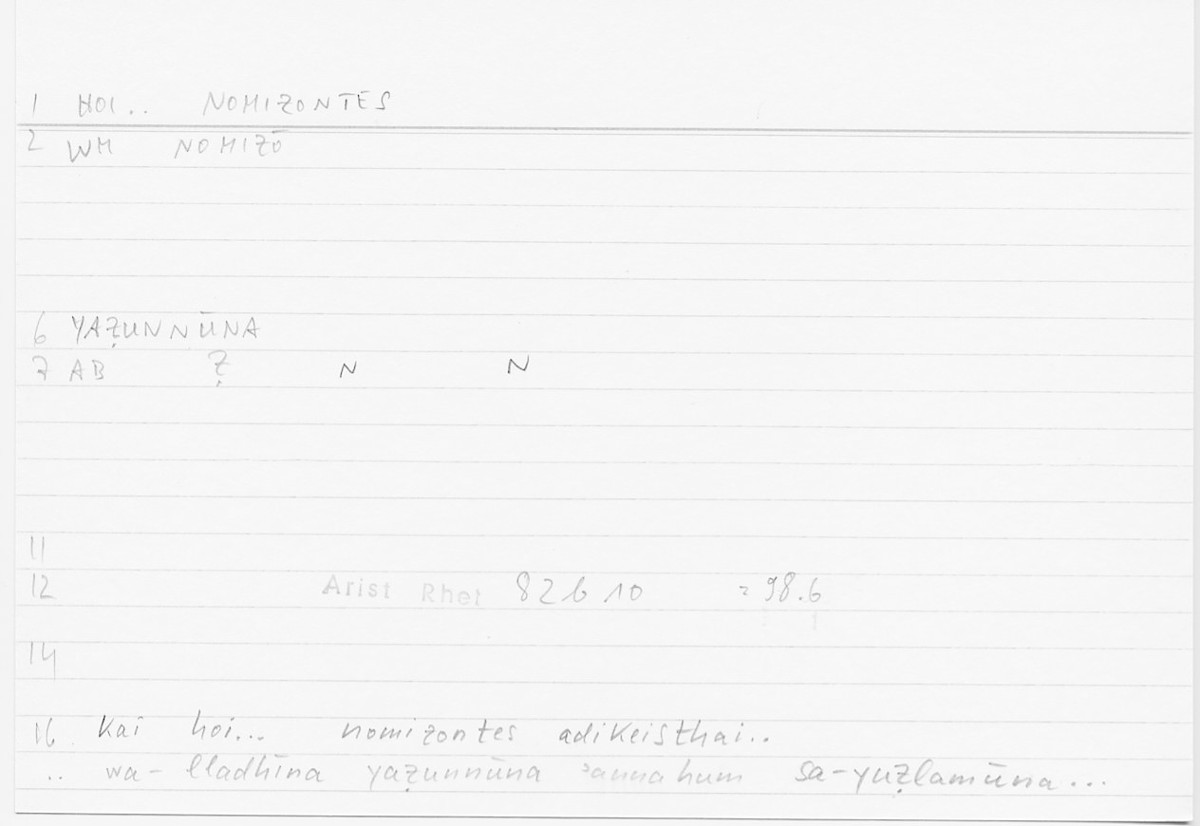 1 HOI.. NOMIZONTES
2 WM NOMIZŌ
6 YAẒUNNŪNA
7 AB Ẓ N N
11
12 Arist Rhet 82b10 = 98.6
14
16 Kai hoi... nomizontes adikeisthai..
.. wa-lladhīna yaẓunnūna ʾannahum sa-yuẓlamūna...